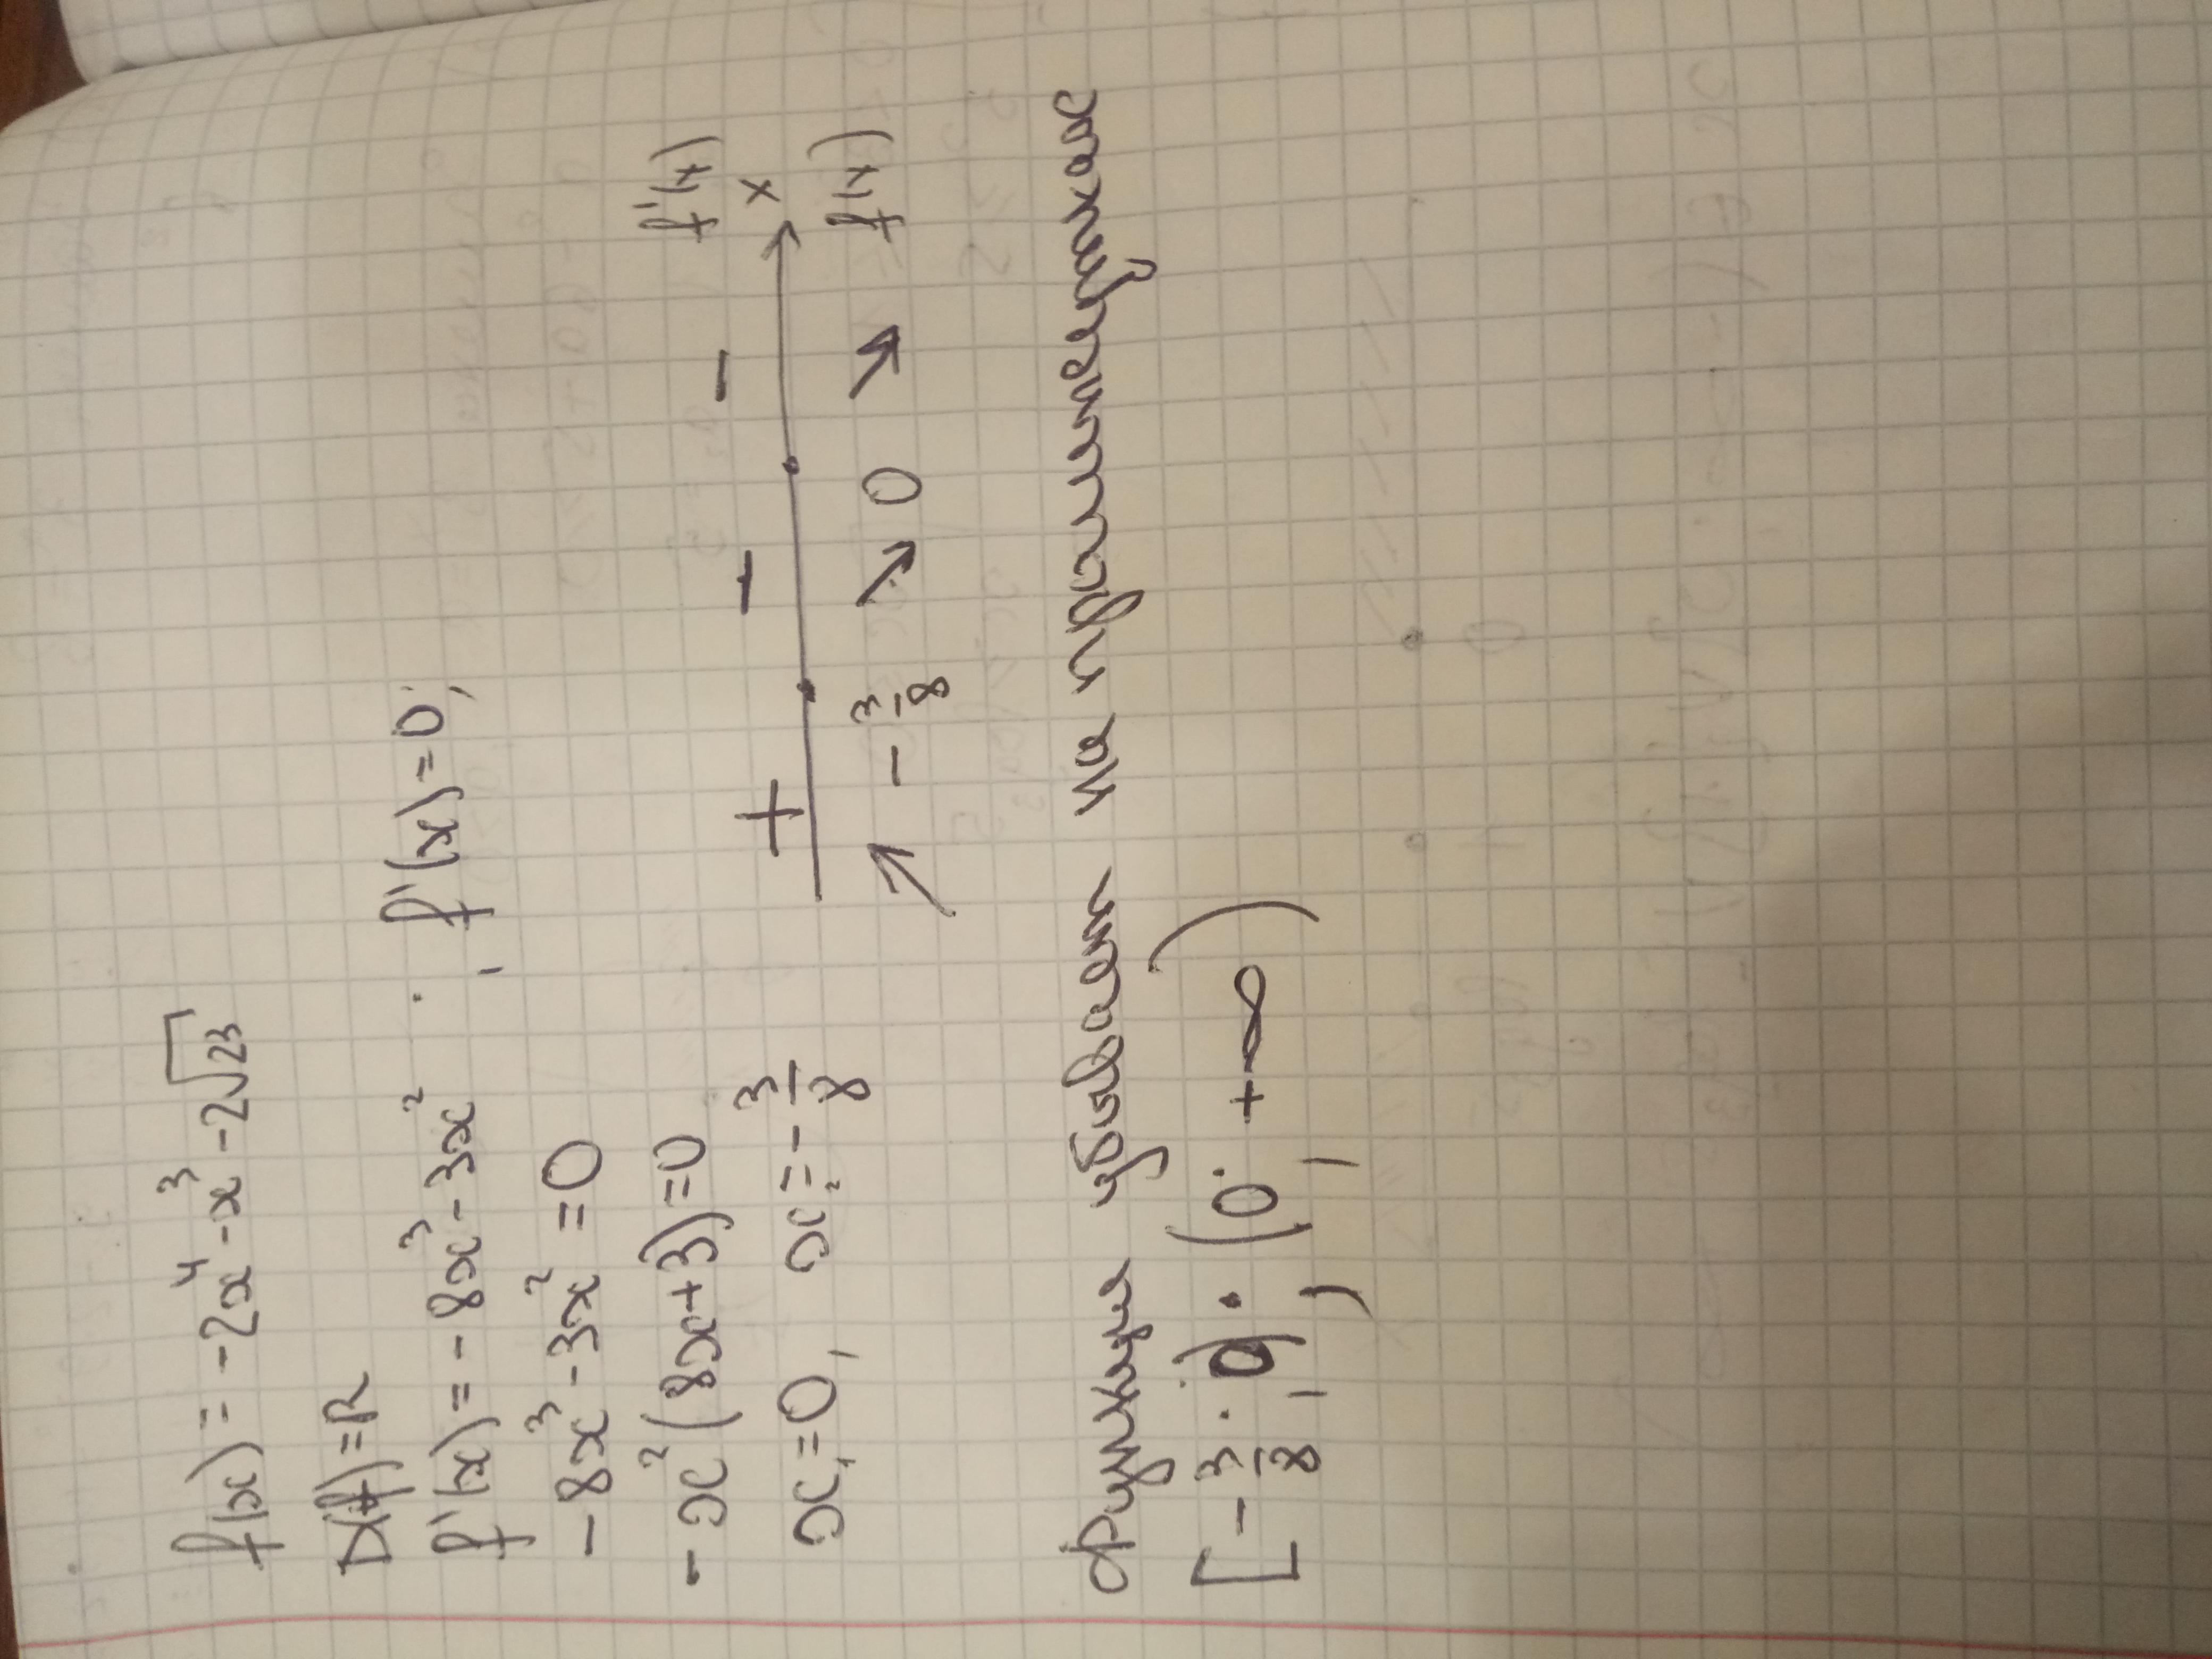 f(x) = -2x⁴-x³-2√23
D(f)=R
f'(x) = -8x³-3x², f'(x)=0;
-8x³-3x² = 0
-x²(8x+3)=0
x₁=0, x₂=-3/8
+ - - f'(x)
x
↗ -3/8 ↘ 0 ↘ f(x)
Функция убывает на промежутках
[-3/8; 0); (0; +∞)